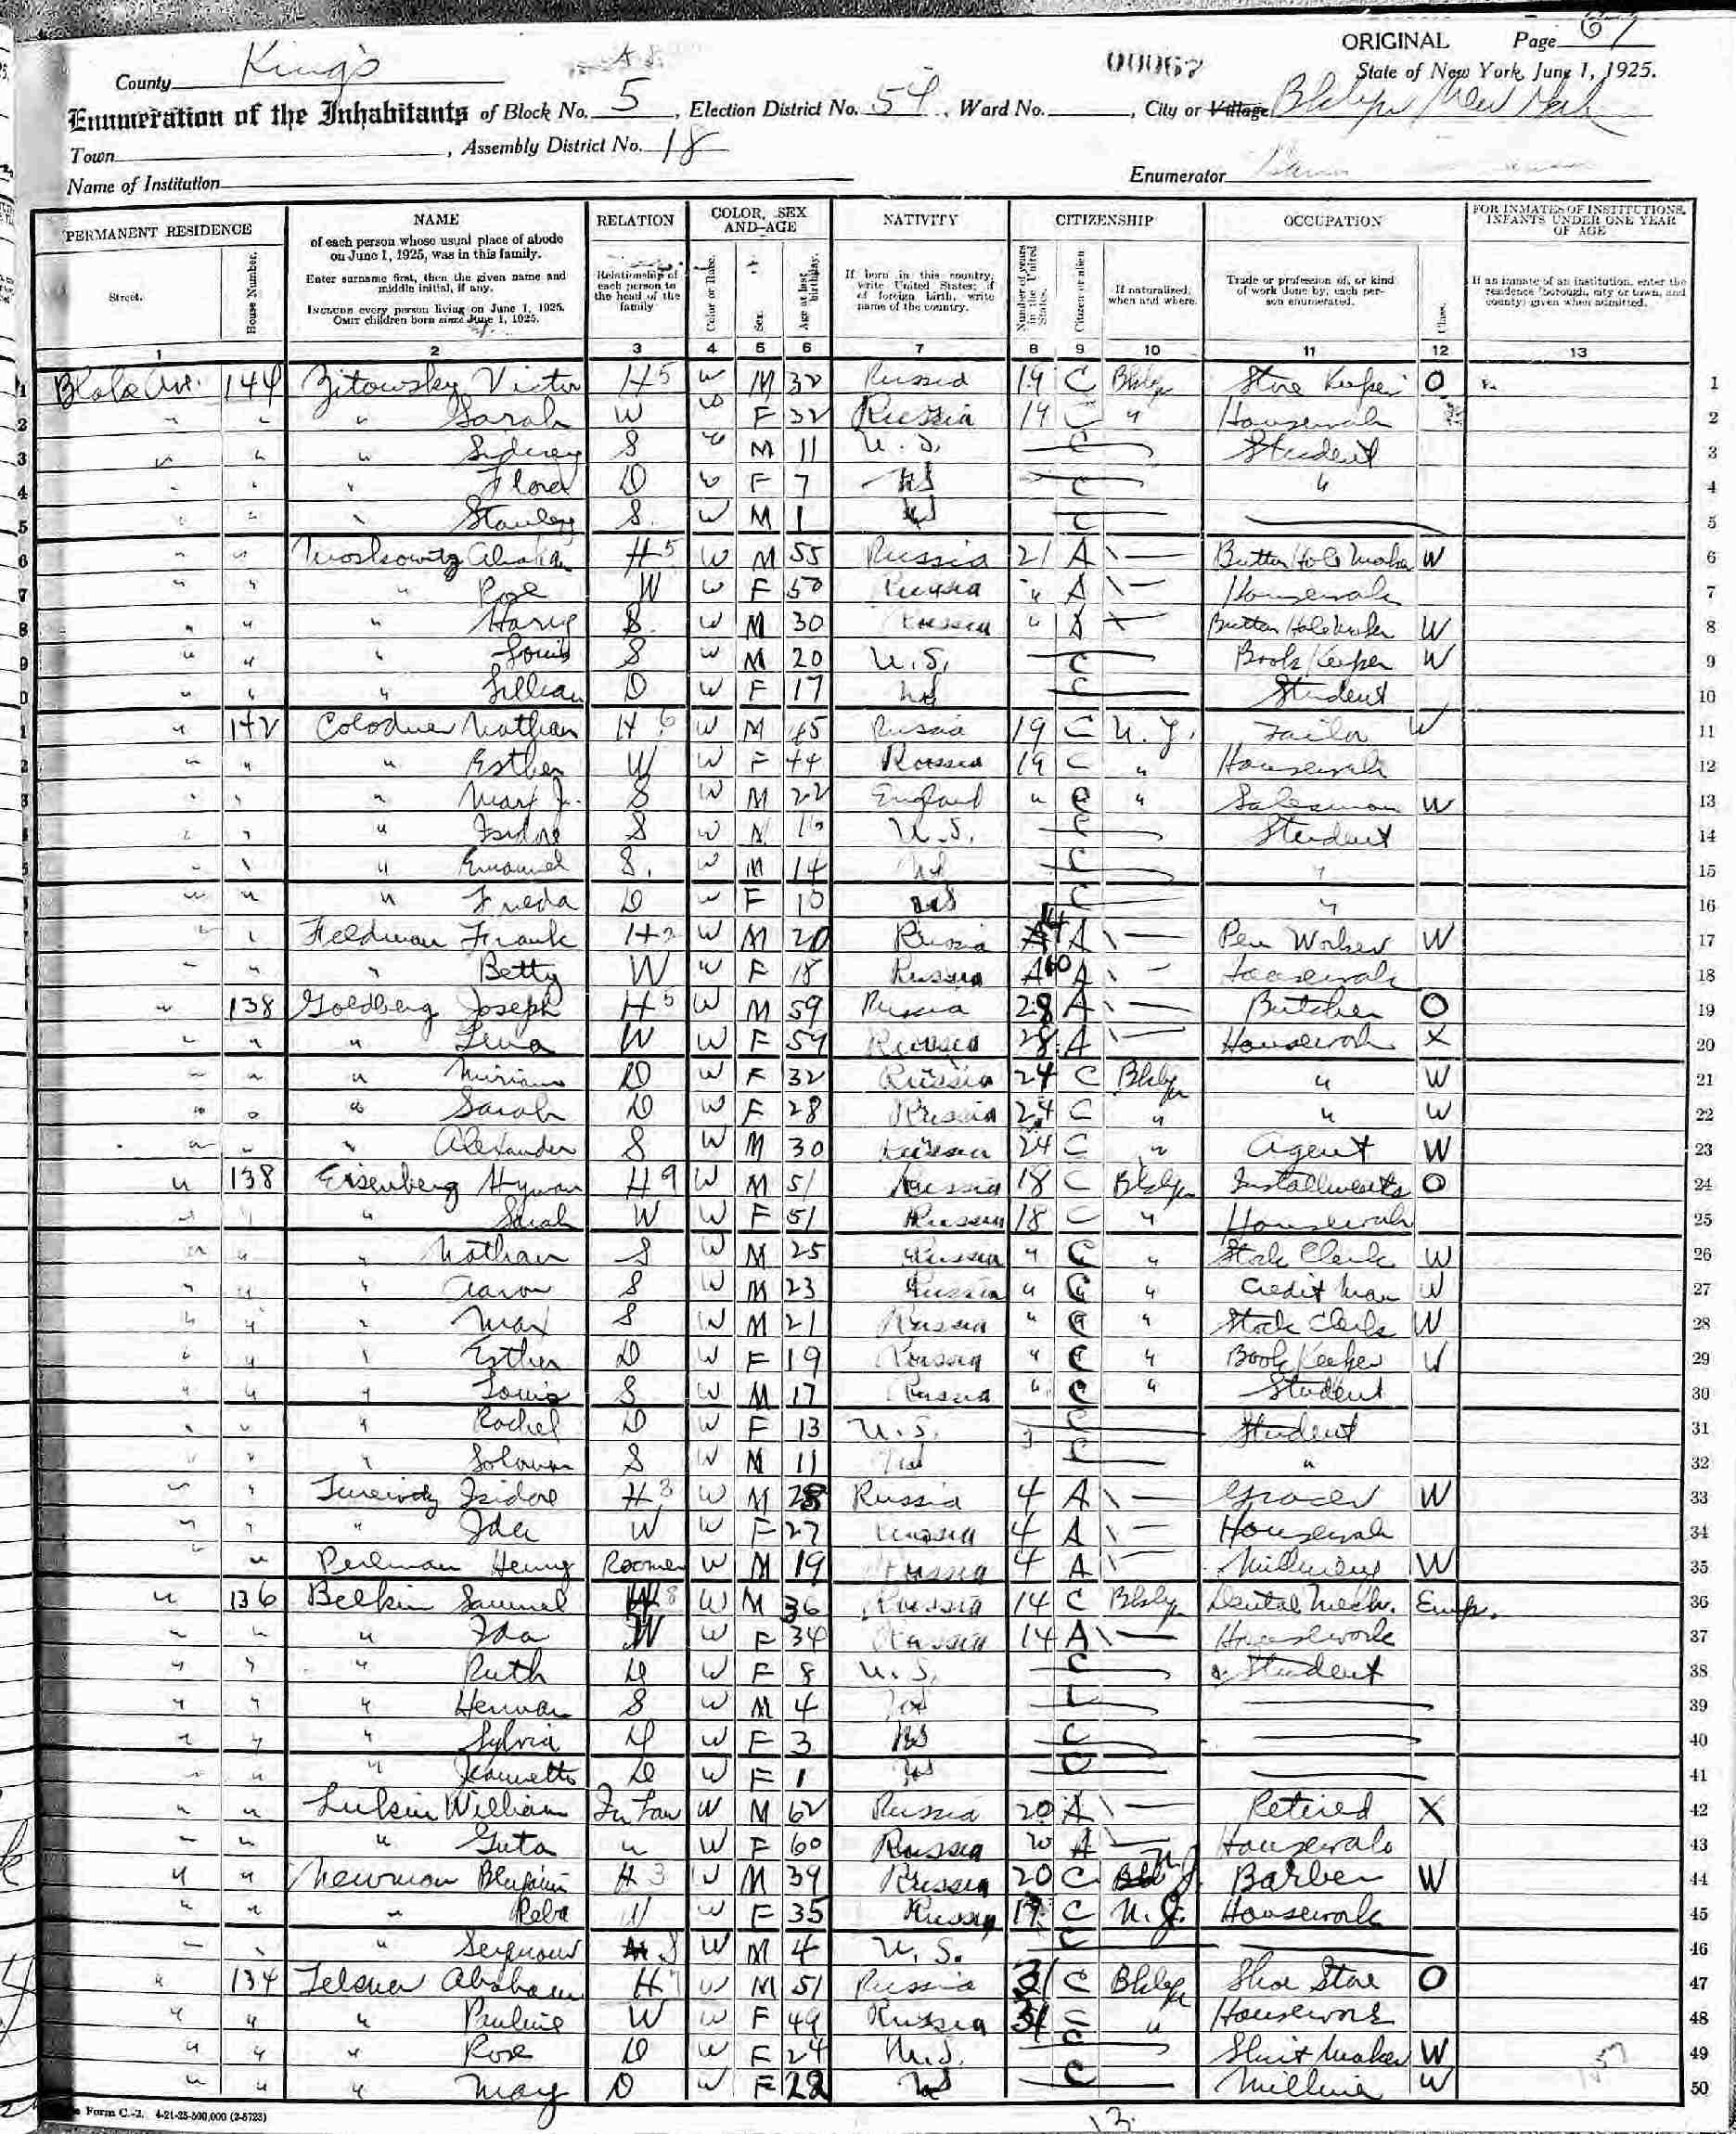 ORIGINAL Page 67
00067
County Kings
State of New York, June 1, 1925.
Enumeration of the Inhabitants of Block No. 5, Election District No. 54, Ward No. , City or Village Bklyn New York
Town , Assembly District No. 18
Name of Institution Enumerator
PERMANENT RESIDENCE
Street.
House Number.
NAME
of each person whose usual place of abode on June 1, 1925, was in this family.
Enter surname first, then the given name and middle initial, if any.
INCLUDE every person living on June 1, 1925.
OMIT children born since June 1, 1925.
RELATION
Relationship of each person to the head of the family
COLOR, SEX AND AGE
Color or Race.
Sex.
Age at last birthday.
NATIVITY
If born in this country, write United States; if of foreign birth, write name of the country.
CITIZENSHIP
Number of years in the United States.
Citizen or alien
If naturalized, when and where.
OCCUPATION
Trade or profession of, or kind of work done by, each person enumerated.
Class.
FOR INMATES OF INSTITUTIONS, INFANTS UNDER ONE YEAR OF AGE
If an inmate of an institution, enter the residence (borough, city or town, and county) given when admitted.
1 2 3 4 5 6 7 8 9 10 11 12 13
1 Blake Ave. 144 Zitowsky Victor H5 W M 32 Russia 19 C Bklyn Store Keeper O 1
2 " " " Sarah W W F 32 Russia 19 C " Housework 2
3 " " " Sidney S W M 11 U.S. C Student 3
4 " " " Flora D W F 7 US C " 4
5 " " " Stanley S. W M 1 US C 5
6 " " Moskowitz H5 W M 55 Russia 21 A \ — Button Hole Maker W 6
7 " " " Rose W W F 50 Russia " A \ — Housework 7
8 " " " Harry S. W M 30 Russia " A Button Hole Maker W 8
9 " " " Louis S W M 20 U.S. C Book Keeper W 9
" " " Lillian D W F 17 US C Student 10
" 142 Colodner Nathan H 6 W M 45 Russia 19 C N.Y. Tailor W 11
" " " Esther W W F 44 Russia 19 C " Housework 12
" " " Max J. S W M 22 England " C " Salesman W 13
" " " Isidore S W M U.S. C Student 14
" " " Emanuel S. W M 14 US C " 15
" " " Frieda D W F 10 US C " 16
" " Feldman Frank H2 W M 20 Russia 14 A \ — Pen Worker W 17
" " " Betty W W F 18 Russia 10 A \ — Housework 18
" 138 Goldberg Joseph H5 W M 59 Russia 28 A \ — Butcher O 19
" " " Lena W W F 54 Russia 28 A \ — Housework X 20
" " " Miriam D W F 32 Russia 24 C Bklyn " W 21
" " " Sarah D W F 28 Russia 24 C " " W 22
" " " Alexander S W M 30 Russia 24 C " Agent W 23
" 138 Eisenberg Hyman H 9 W M 51 Russia 18 C Bklyn Installments O 24
" " " Sarah W W F 51 Russia 18 C " Housework 25
" " " Nathan S W M 25 Russia " C " Stock Clerk W 26
" " " Aaron S W M 23 Russia " C " Credit Man W 27
" " " Max S W M 21 Russia " C " Stock Clerk W 28
" " " Esther D W F 19 Russia " C " Book Keeper W 29
" " " Louis S W M 17 Russia " C " Student 30
" " " Rachel D W F 13 U.S. C Student 31
" " " Solomon S W M 11 US C " 32
" " Isidore H3 W M 28 Russia 4 A \ — Grocer W 33
" " " Ida W W F 27 Russia 4 A \ — Housework 34
" " Perlman Henry Roomer W M 19 Russia 4 A \ — Millinery W 35
" 136 Belkin Samuel H8 W M 36 Russia 14 C Bklyn Dental Mech. Emp. 36
" " " Ida W W F 34 Russia 14 A \ — Housework 37
" " " Ruth D W F 8 U.S. C Student 38
" " " Herman S W M 4 US C 39
" " " Sylvia D W F 3 US C 40
" " " Jeannette D W F 1 US C 41
" " Lukin William In Law W M 62 Russia 20 A \ — Retired X 42
" " " Guta " W F 60 Russia 20 A \ — Housework 43
" " Newman Benjamin H 3 W M 39 Russia 20 C N.J. Barber W 44
" " " Reba W W F 35 Russia 17 C N.J. Housework 45
" " " Seymour S W M 4 U.S. C 46
" 134 Telsner Abraham H W M 51 Russia 31 C Bklyn Shoe Store O 47
" " " Pauline W W F 49 Russia 34 C " Housework 48
" " " Rose D W F 24 U.S. C Skirt Maker W 49
" " " May D W F 22 US C Milliner W 50
Form C.-2. 4-21-25-500,000 (2-5723)
13